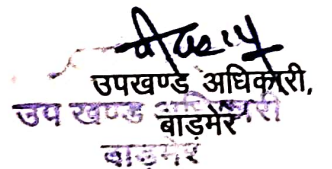 उपखण्ड अधिकारी,
बाड़मेर
उप खण्ड अधिकारी
बाड़मेर